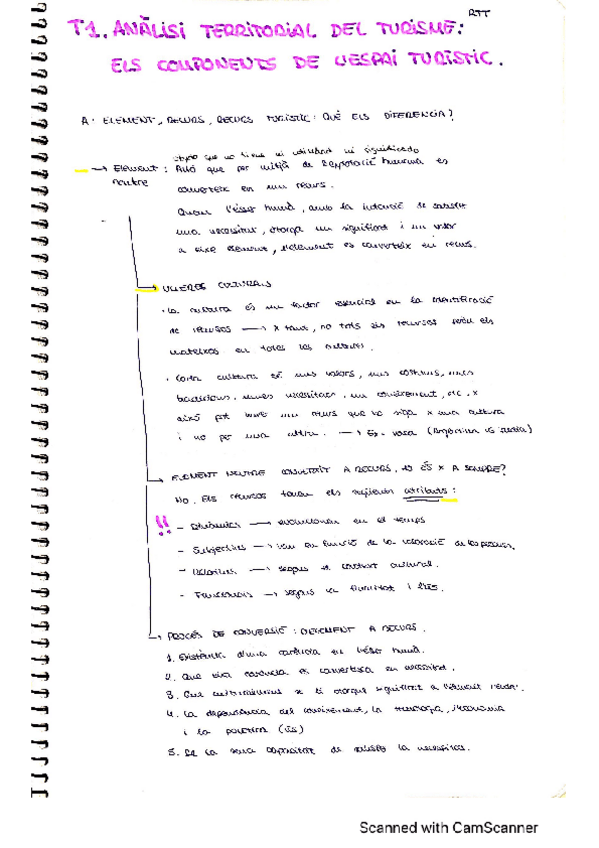 RTT
T1. ANÀLISI TERRITORIAL DEL TURISME:
ELS COMPONENTS DE L'ESPAI TURÍSTIC.
A: ELEMENT, RECURS, RECURS TURÍSTIC: QUÈ ELS DIFERENCIA?
que no tiene ni utilidad ni significado
→ Element : Allò que per mitjà de l'explotació humana es
neutre converteix en un recurs.
Quan l'ésser humà, amb la intenció de satisfer
una necessitat, otorga un significat i un valor
a eixe element, l'element es converteix en recurs.
→ ULLERES CULTURALS
· La cultura és un factor essencial en la identificació
de recursos → x tant, no tots els recursos seran els
mateixos en totes les cultures.
· Cada cultura té uns valors, uns costums, unes
tradicions, unes necessitats, un coneixement, etc. x
això pot haver un recurs que ho siga x una cultura
i no per una altra. → Ex. vaca (Argentina vs India)
→ ELEMENT NEUTRE CONVERTIT A RECURS, HO ÉS X A SEMPRE?
No. Els recursos tenen els següents atributs:
!! - Dinàmics → evolucionen en el temps
- Subjectius → van en funció de la valoració de les persones.
- Relatius → segons el context cultural.
- Funcionals → segons la finalitat i l'ús.
→ PROCÉS DE CONVERSIÓ: D'ELEMENT A RECURS.
1. Existència d'una carència en l'ésser humà.
2. Que eixa carència es converteixa en necessitat.
3. Que se li otorgue significat a l'element neutre.
4. La dependència del coneixement, la tecnologia, l'economia
i la política (ús)
5. De la seua capacitat de satisfer la necessitat.
Scanned with CamScanner